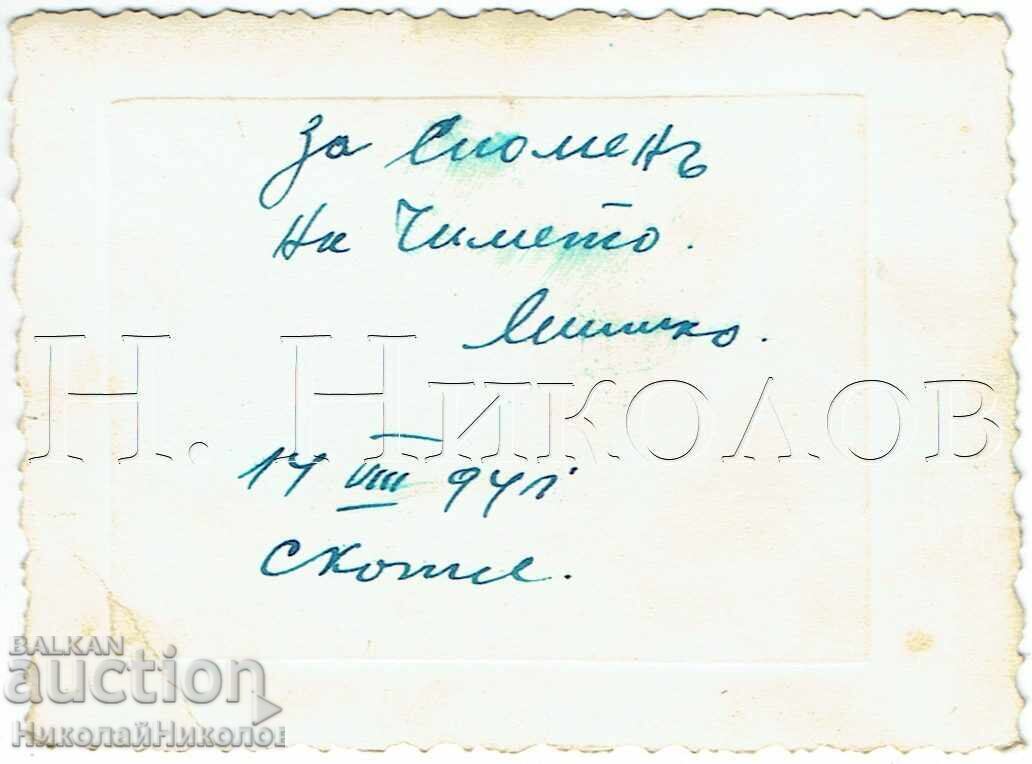 За Споменъ
на Чимето.
Мишко.
Н. Николов
14 VIII 941
Скопие.
BALKAN
auction
НиколайНиколов